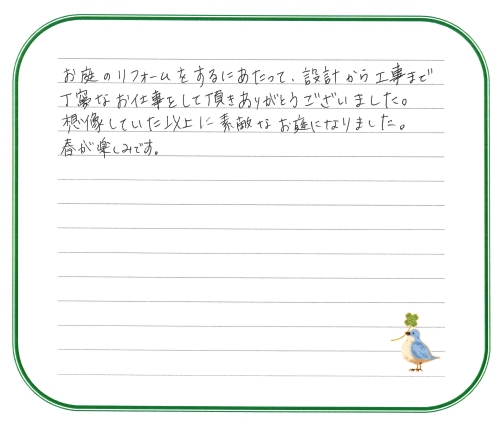 お庭のリフォームをするにあたって、設計から工事まで
丁寧なお仕事をして頂きありがとうございました。
想像していた以上に素敵なお庭になりました。
春が楽しみです。